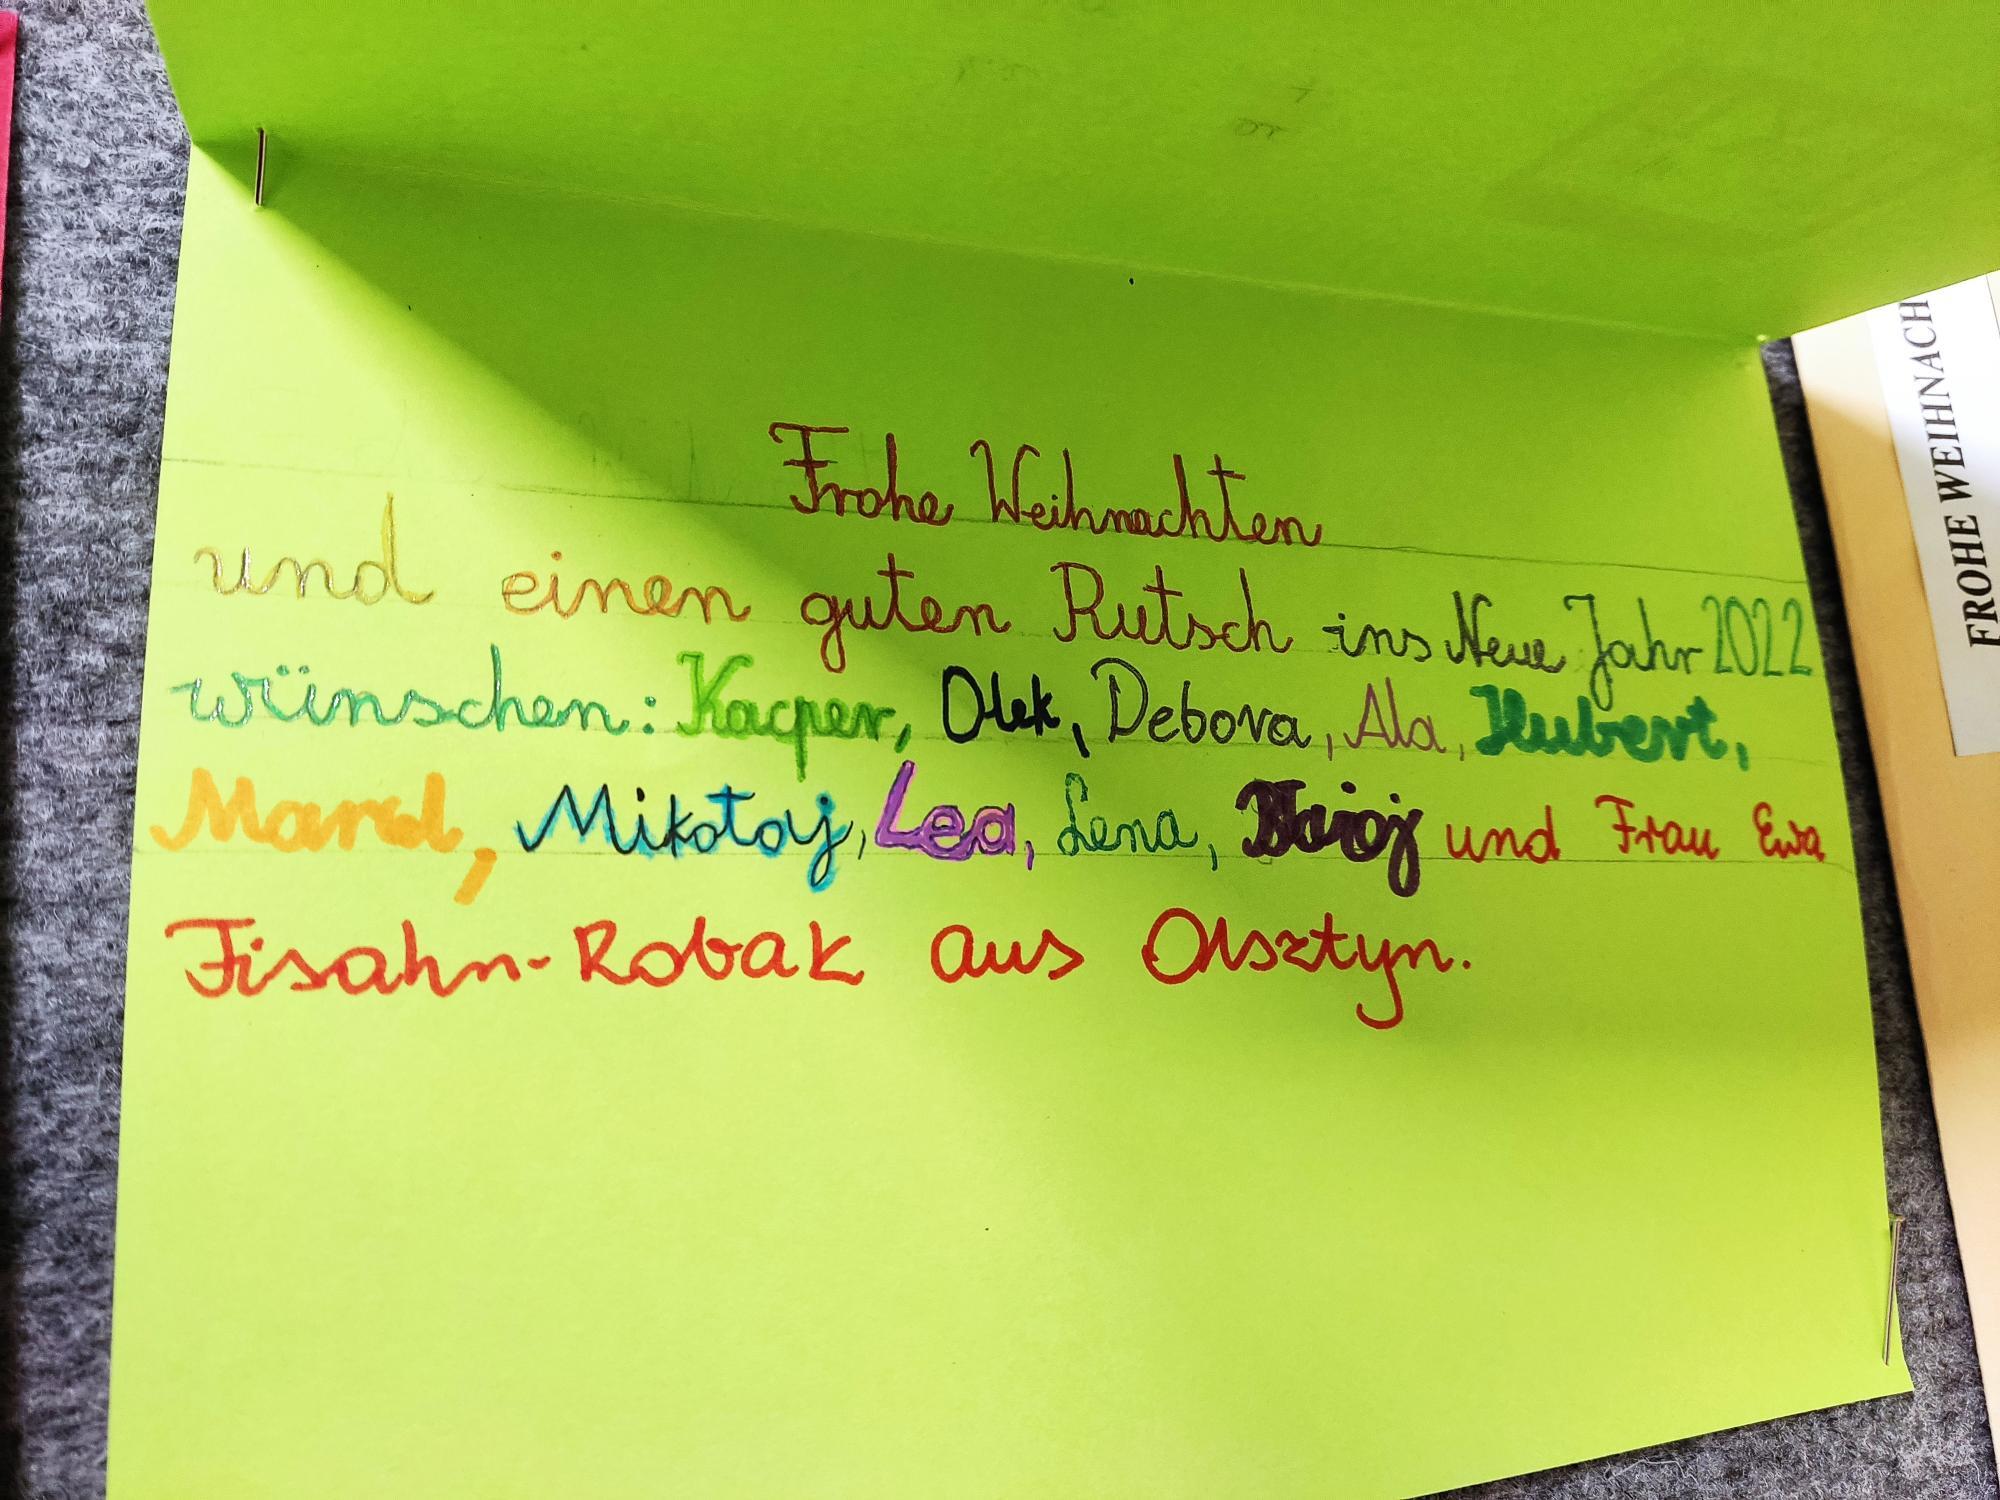 Frohe Weihnachten
und einen guten Rutsch ins Neue Jahr 2022
wünschen: Kacper, Olek, Debora, Ala, Hubert,
Marcel, Mikołaj, Lea, Lena, und Frau Ewa
Fisahn-Robak aus Olsztyn.
FROHE WEIHNACH